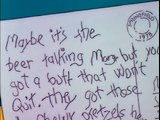 Maybe it's the
beer talking Marge but you
got a butt that won't
Quit. they got those
chewy pretzels he